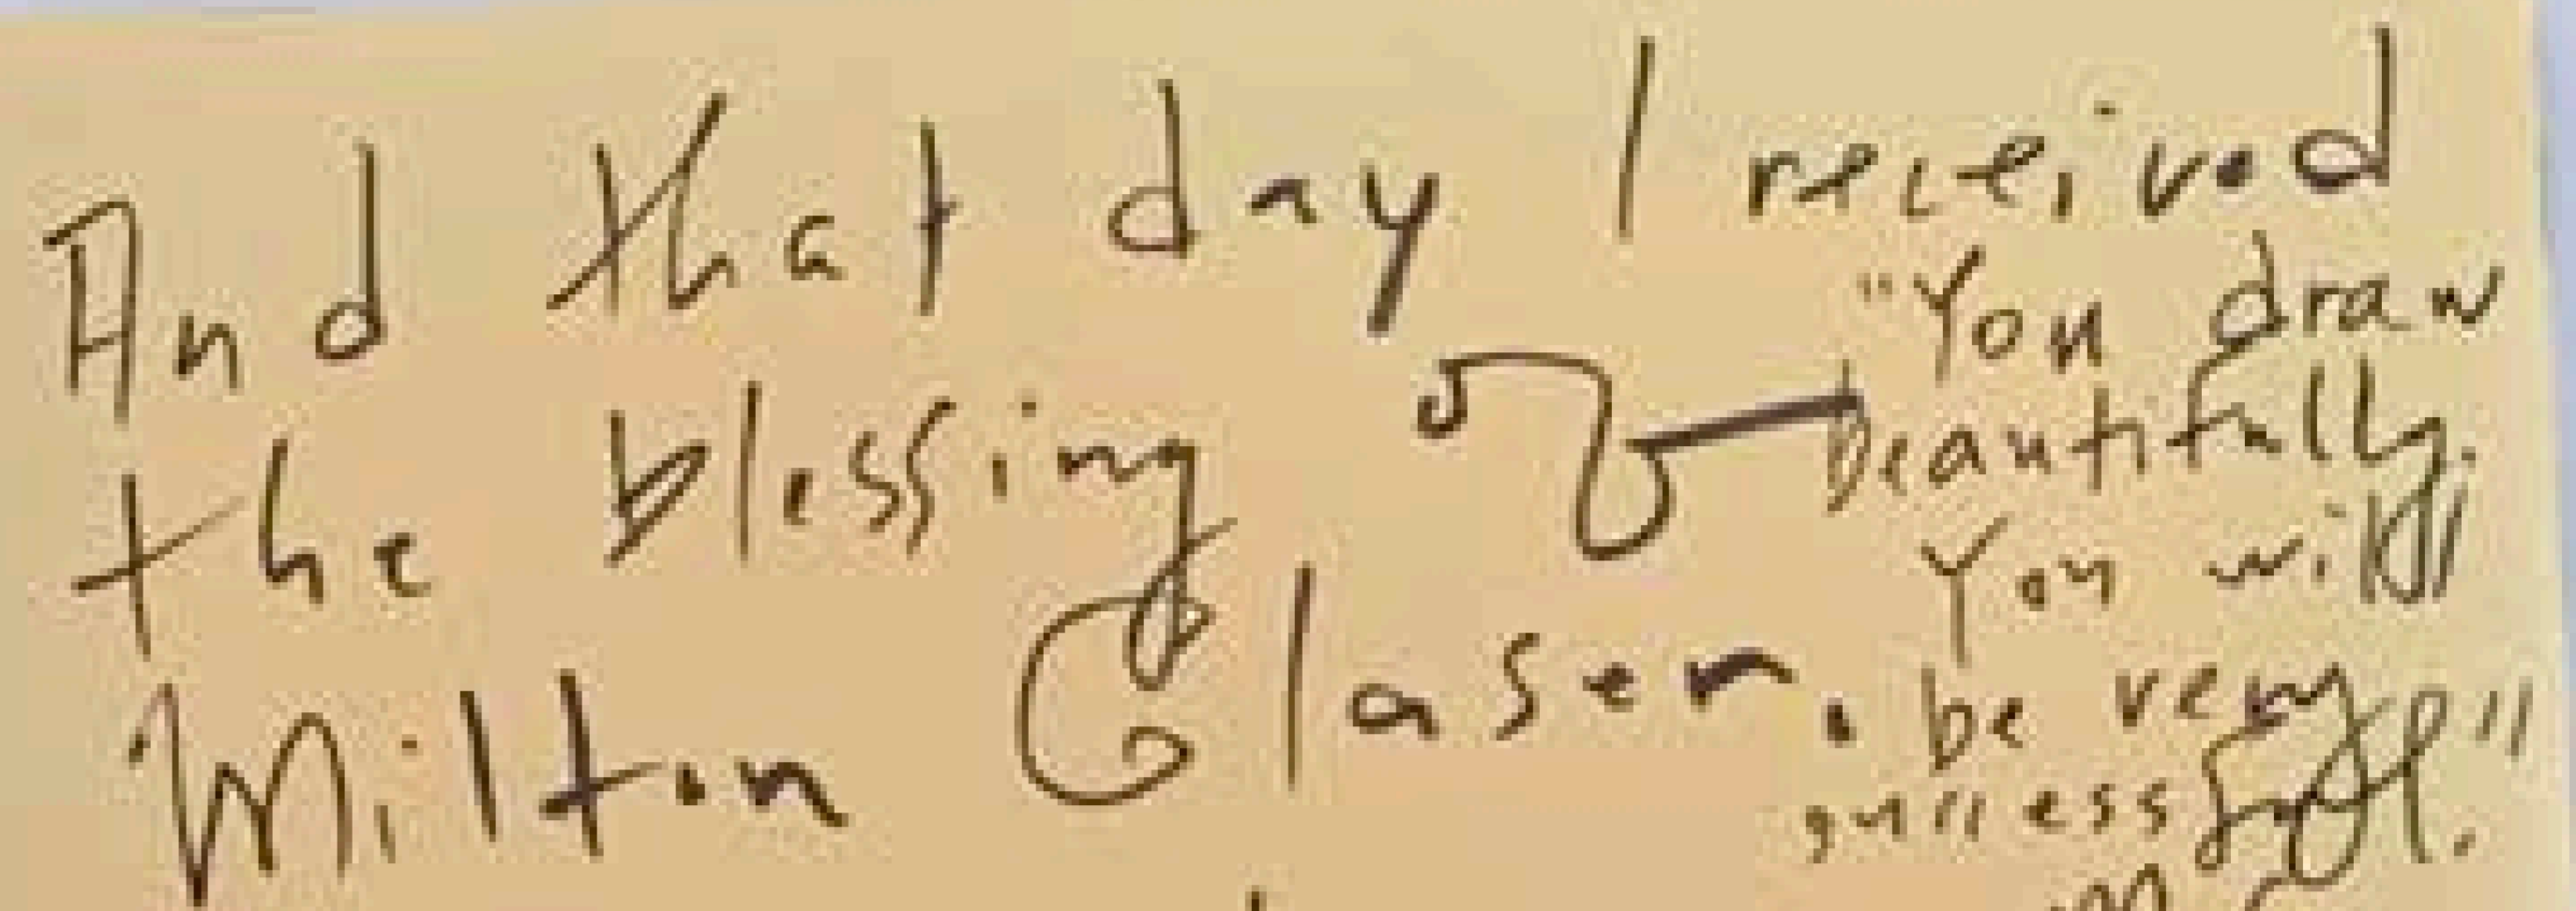 And that day I received
the blessing of
Milton Glaser.
"You draw
beautifully.
You will
be very
successful."